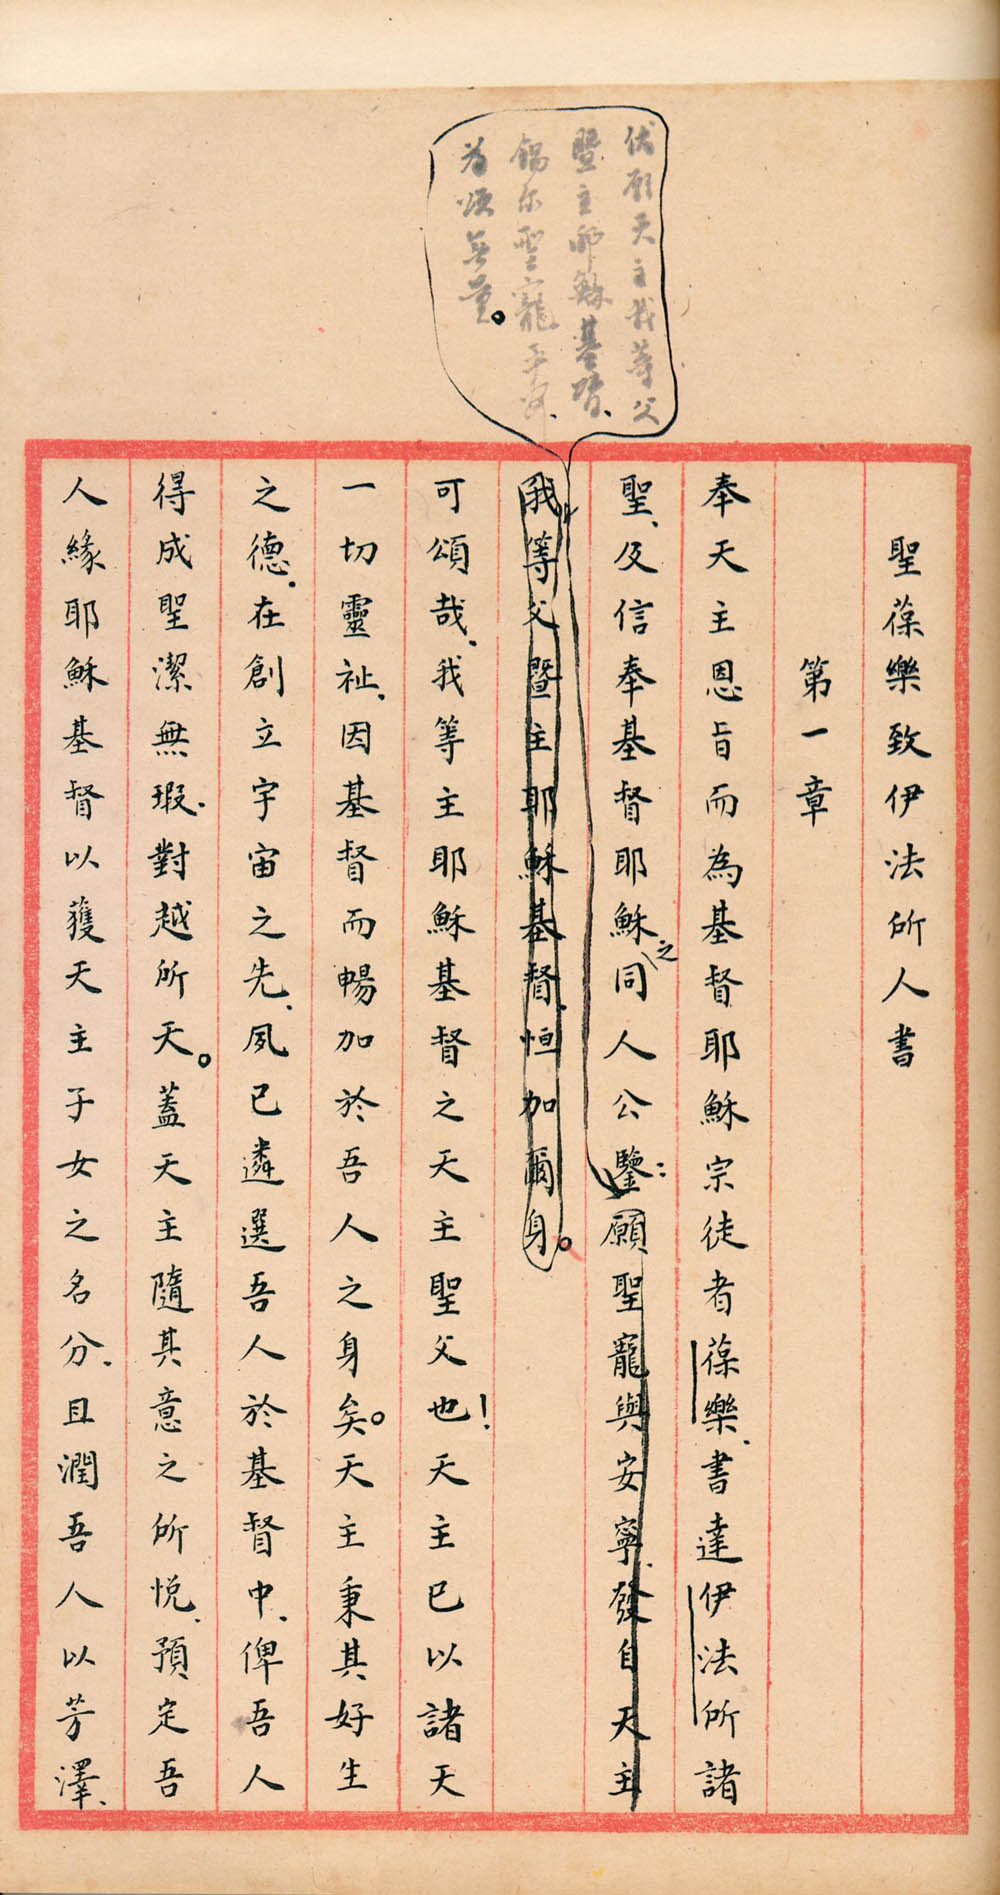 伏願天主我等父
暨主耶穌基督、
錫尔聖寵平安、
為頌無量。
聖葆樂致伊法所人書
第一章
奉天主恩旨而為基督耶穌宗徒者葆樂、書達伊法所諸
聖、及信奉基督耶穌之同人公鑒:願聖寵與安寧、發自天主
我等父暨主耶穌基督、恒加爾身。
可頌哉、我等主耶穌基督之天主聖父也!天主已以諸天
一切靈祉、因基督而暢加於吾人之身矣。天主秉其好生
之德、在創立宇宙之先、夙已遴選吾人於基督中、俾吾人
得成聖潔無瑕、對越所天。蓋天主隨其意之所悅、預定吾
人緣耶穌基督以獲天主子女之名分、且潤吾人以芳澤、